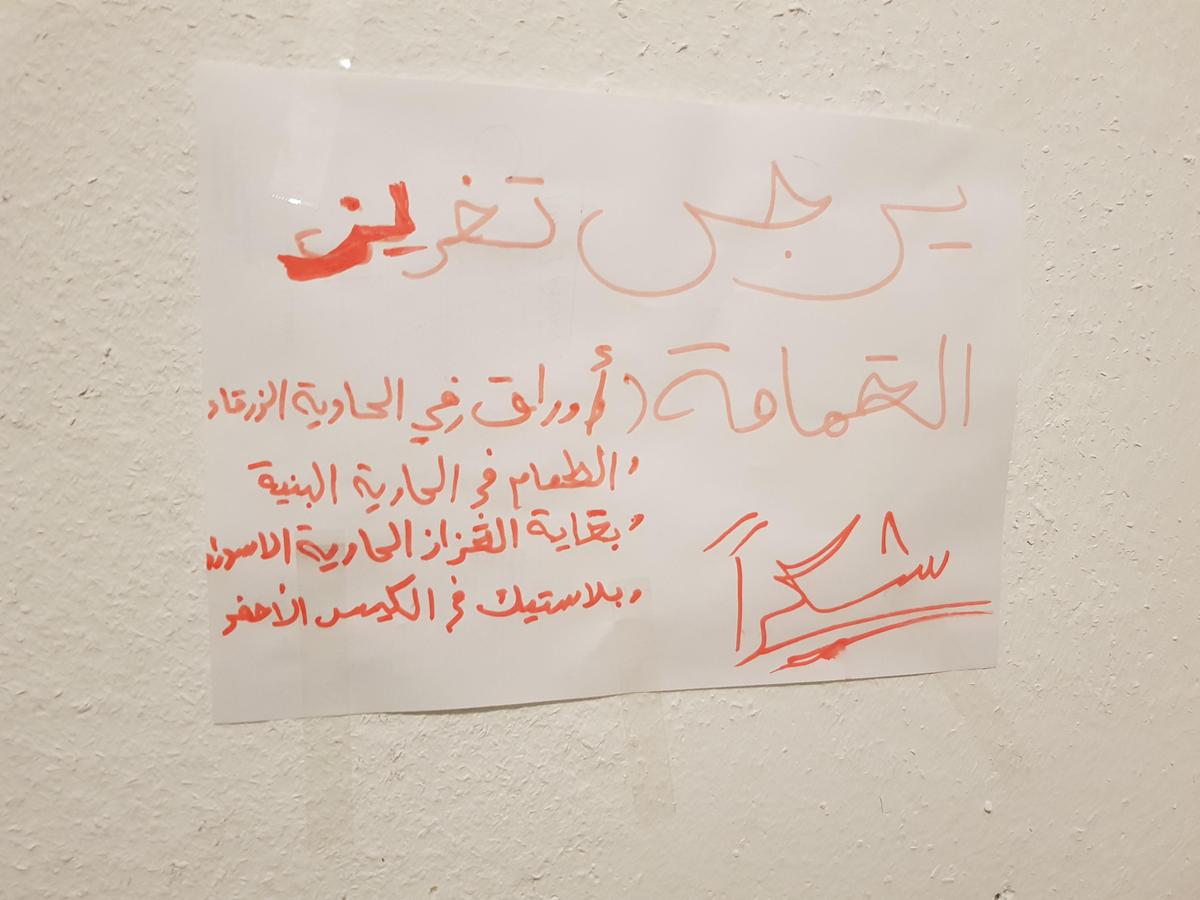 يرجى تغريز
القمامة (أوراق في الحاوية الزرقاء
، الطعام في الحاوية البنية
، بقاية القزاز الحاوية الاسود
، بلاستيك في الكيس الأصفر
شكراً